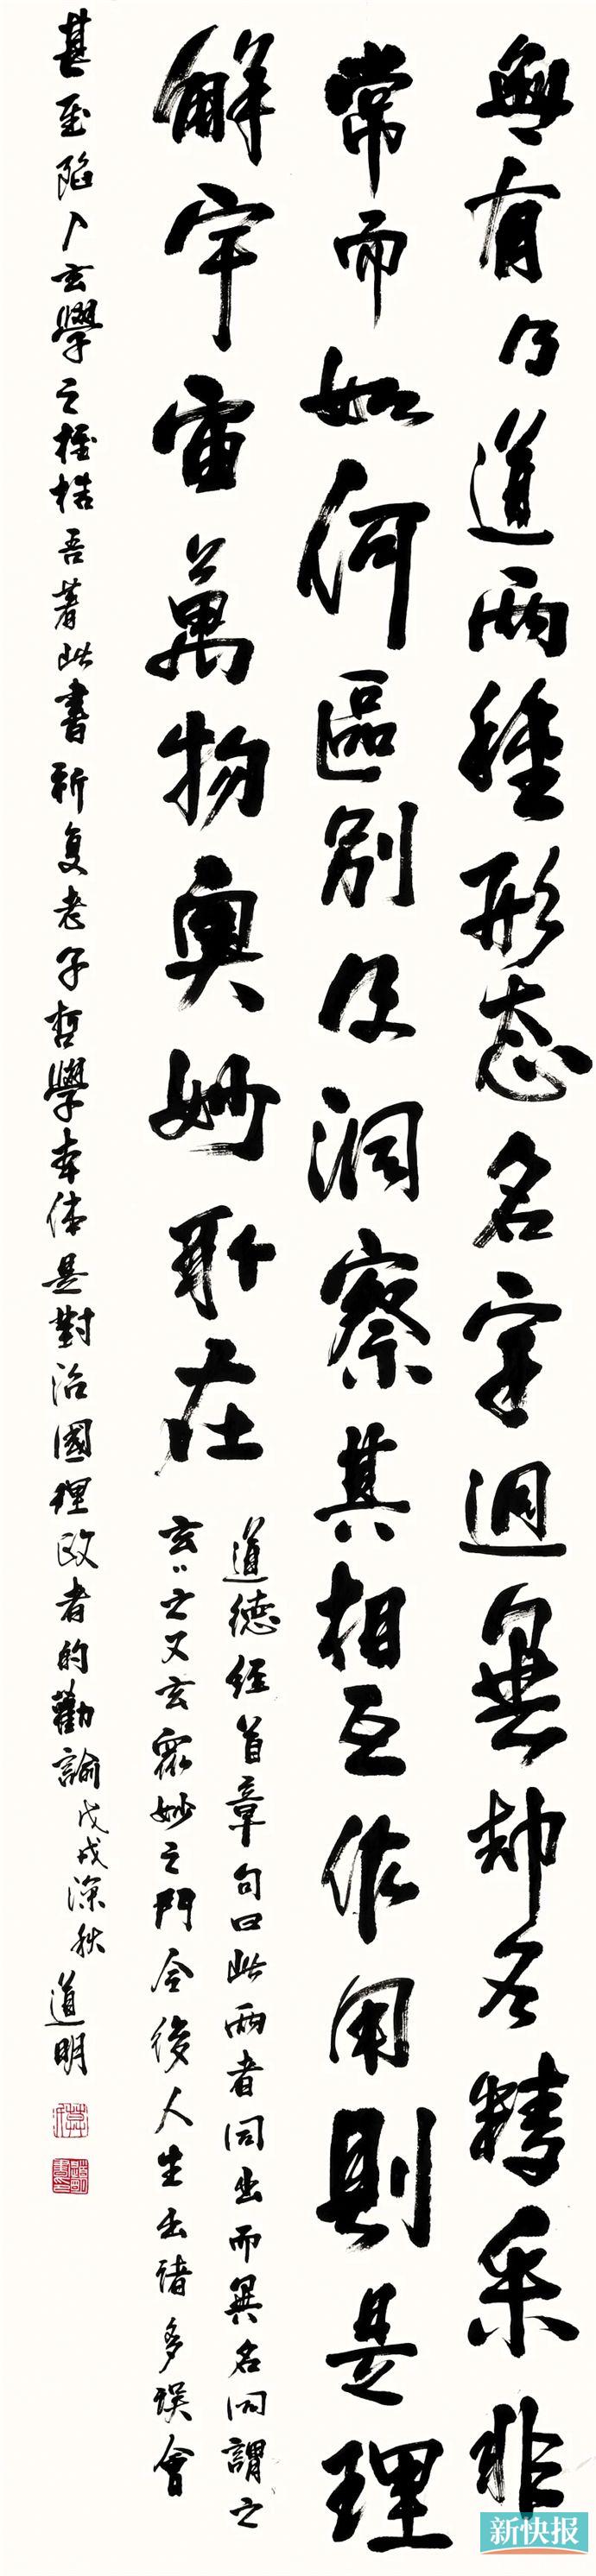 無有乃道兩種形态名字迥異却各精采非
常而如何區别及洞察其相互作用則是理
解宇宙萬物奥妙所在
道德经首章句曰此兩者同出而異名同謂之
玄玄之又玄衆妙之門令後人生出诸多误會
甚至陷入玄學之桎梏吾著此書祈复老子哲學本体是對治國理政者的勸諭戊戌深秋道明
新快报